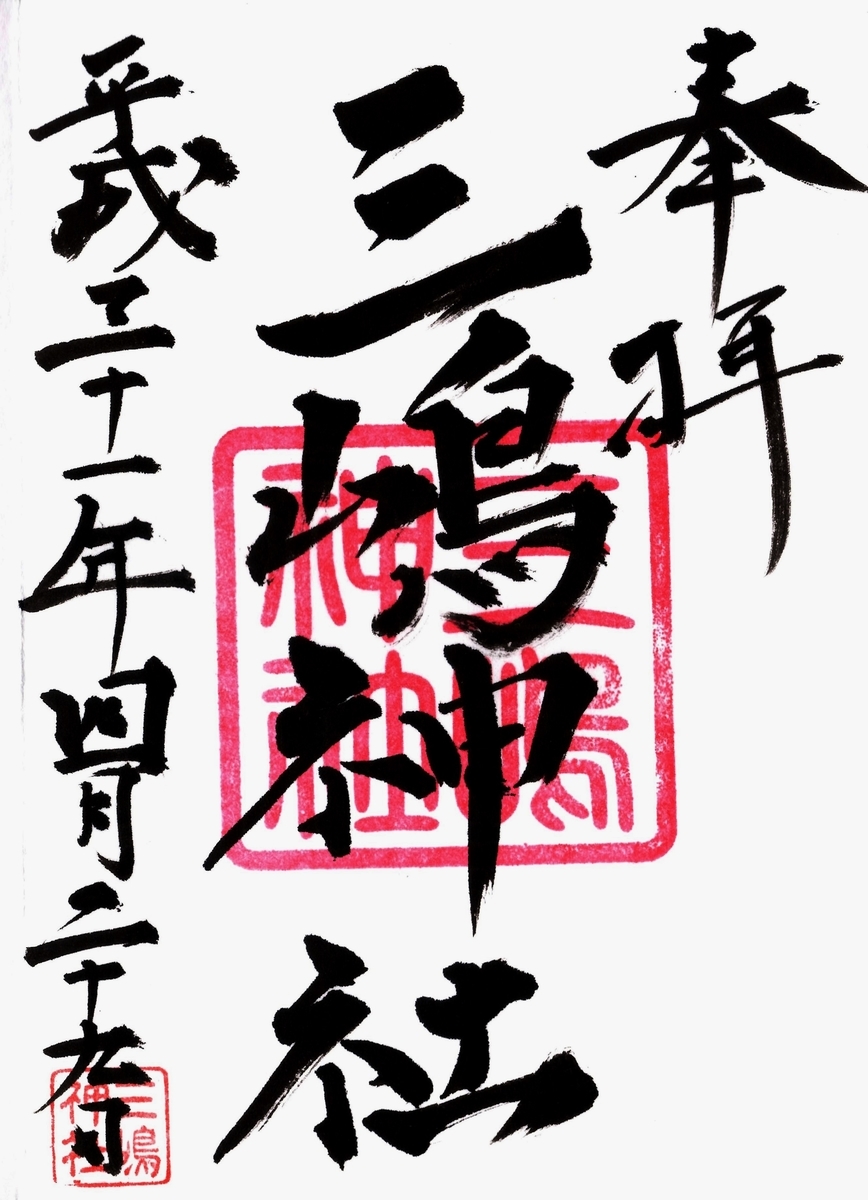 奉拝
三嶋神社
三嶋神社
平成三十一年四月二十九日
三嶋神社